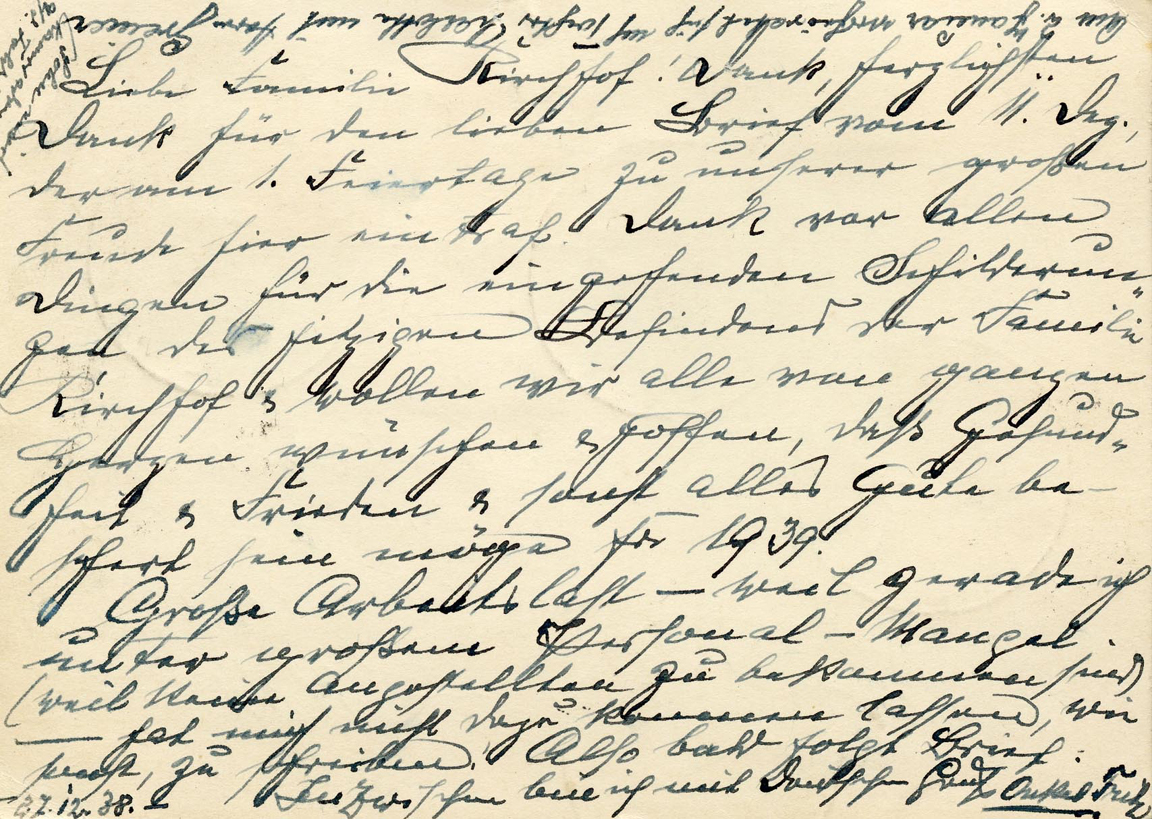 Liebe Familie Kirchhof! Dank, herzlichsten
Dank für den lieben Brief vom 11. Dez.,
der am 1. Feiertage zu unserer großen
Freude hier eintraf. Dank vor allen
Dingen für die eingehenden Schilderun-
gen des jetzigen Befindens der Familie
Kirchhof & wollen wir alle von ganzen
Herzen wünschen & hoffen, daß Gesund-
heit & Frieden & sonst alles Gute be-
schert sein möge für 1939.
Große Arbeitslast — weil gerade ich
unter großem Personal-Mangel
(weil keine Angestellten zu bekommen sind)
— hat mich nicht dazu kommen lassen, wie
sonst, zu schreiben. Also bald folgt Brief.
Inzwischen bin ich mit Deutschen Gruß Onkel Fritz
27.12.38.